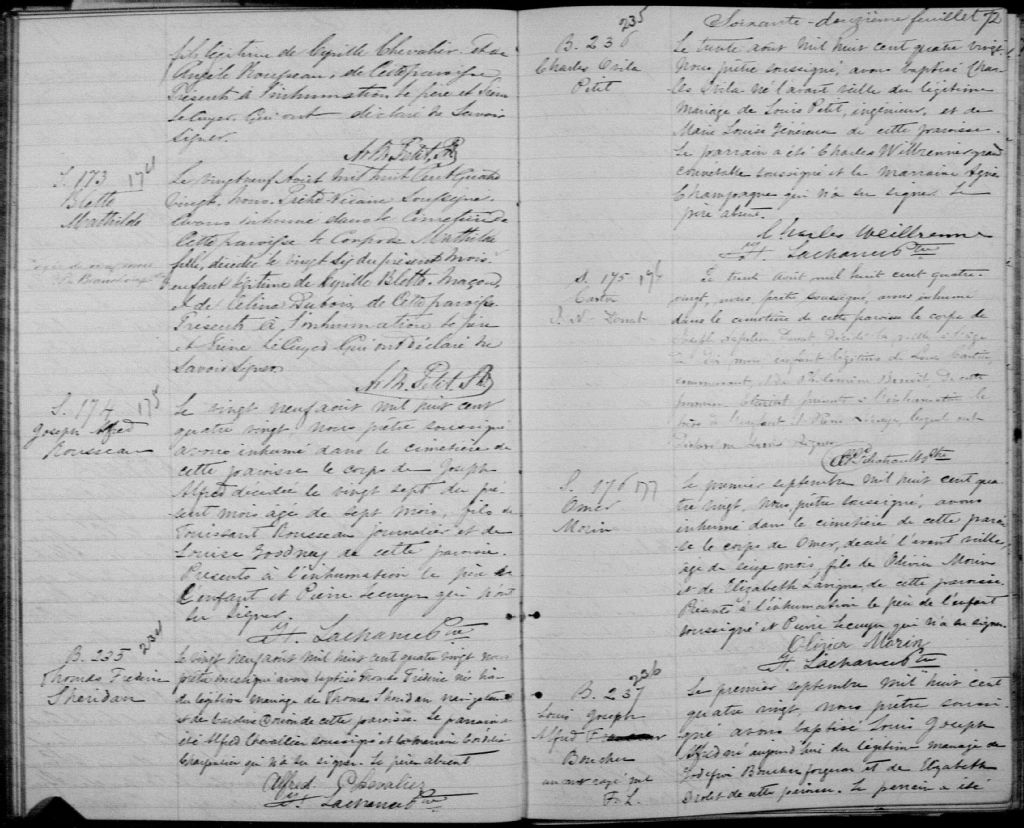 fils légitime de Cyrille Chevalier et de
Angèle Rousseau, de cette paroisse
Présents à l'inhumation le père et Pierre
Lecuyer. Qui ont déclaré ne savoir
signer.
Petit
S. 173
Blette
Mathilde
Le vingt neuf Août mil huit cent quatre
vingt. Nous Prêtre Vicaire soussigné
avons inhumé dans le cimetière de
cette paroisse le corps de Mathilde
fille, décédée le vingt six du présent mois
enfant légitime de Cyrille Blette. Maçon
et de Celina Dubois, de cette paroisse
Présents à l'inhumation le père
et Pierre Lécuyer Qui ont déclaré ne
savoir signer
Petit
S. 174 175
Joseph Alfred
Rousseau
Le vingt neuf août mil huit cent
quatre vingt, nous prêtre soussigné
avons inhumé dans le cimetière de
cette paroisse le corps de Joseph
Alfred décédée le vingt sept du pré-
sent mois agé de sept mois, fils de
Toussaint Rousseau journalier et de
Louise de cette paroisse.
Présents à l'inhumation le père de
l'enfant et Pierre Lecuyer qui n'ont
su signer
Lachance Ptre
B. 235 234
Thomas
Sheridan
Le vingt neuf août mil huit cent quatre vingt nous
prêtre soussigné avons baptisé Thomas né
du légitime mariage de Thomas Sheridan navigateur
et de de cette paroisse. Le parrain a
été Alfred Chevallier soussigné et la marraine
Charpentier qui n'a su signer. Le père absent
Alfred Chevalier
Lachance Ptre
Soixante-douzième feuillet 72
B. 236 235
Charles Ovila
Petit
Le trente août mil huit cent quatre vingt
Nous prêtre soussigné, avons baptisé Char-
les Ovila né l'avant veille du légitime
mariage de Louis Petit, ingénieur, et de
Marie Louise Généreux de cette paroisse.
Le parrain a été Charles
soussigné et la marraine
Champagne qui n'a su signer Le
père absent.
Charles
Lachance Ptre
S. 175 176
J. N. Donat
Le trente Août mil huit cent quatre-
vingt, nous, prêtre soussigné, avons inhumé
dans le cimetière de cette paroisse le corps de
Joseph Napoléon Donat décédé la veille à l'âge
de dix mois enfant légitime de Louis
commerçant, et de Philomène Benoit de cette
paroisse Etaient présents à l'inhumation le
père de l'enfant et Pierre Lécuyer, lequel ont
déclaré ne savoir signer
S. 176 177
Omer
Morin
Le premier septembre mil huit cent qua-
tre vingt, nous prêtre soussigné, avons
inhumé dans le cimetière de cette parois-
se le corps de Omer, décédé l'avant veille,
agé de seize mois, fils de Olivier Morin
et de Elizabeth Lavigne de cette paroisse.
Présents à l'inhumation le père de l'enfant
soussigné et Pierre Lecuyer qui n'a su signer.
Olivier Morin
Lachance Ptre
B. 237 236
Louis Joseph
Alfred
Boucher
un mot rayé nul
F. L.
Le premier septembre mil huit cent
quatre vingt, nous prêtre soussi-
gné avons baptisé Louis Joseph
Alfred né aujourd'hui du légitime mariage de
Boucher forgeron et de Elizabeth
Drolet de cette paroisse. Le parrain a été